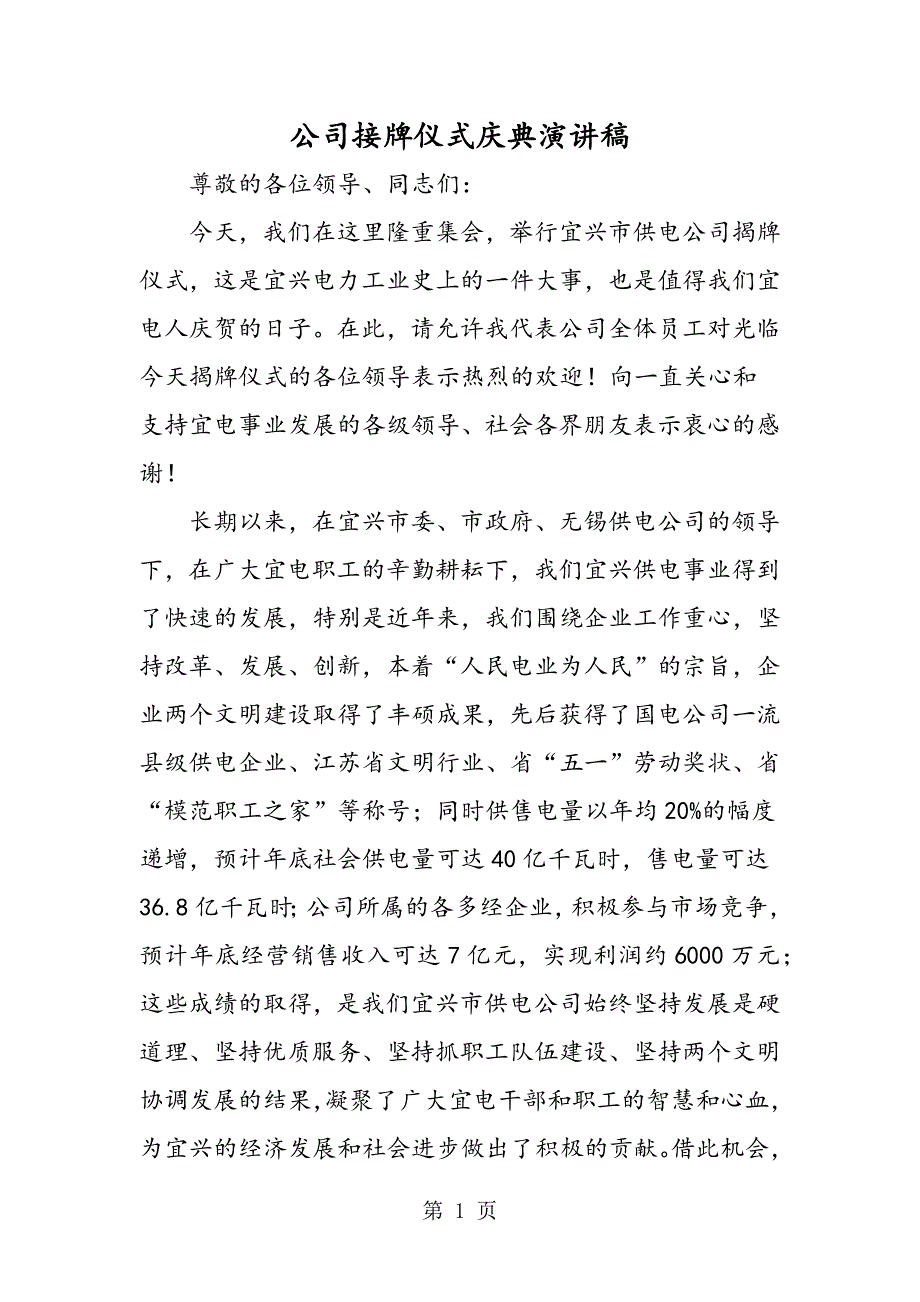 公司接牌仪式庆典演讲稿
尊敬的各位领导、同志们：
今天，我们在这里隆重集会，举行宜兴市供电公司揭牌
仪式，这是宜兴电力工业史上的一件大事，也是值得我们宜
电人庆贺的日子。在此，请允许我代表公司全体员工对光临
今天揭牌仪式的各位领导表示热烈的欢迎！向一直关心和
支持宜电事业发展的各级领导、社会各界朋友表示衷心的感
谢！
长期以来，在宜兴市委、市政府、无锡供电公司的领导
下，在广大宜电职工的辛勤耕耘下，我们宜兴供电事业得到
了快速的发展，特别是近年来，我们围绕企业工作重心，坚
持改革、发展、创新，本着“人民电业为人民”的宗旨，企
业两个文明建设取得了丰硕成果，先后获得了国电公司一流
县级供电企业、江苏省文明行业、省“五一”劳动奖状、省
“模范职工之家”等称号；同时供售电量以年均20%的幅度
递增，预计年底社会供电量可达40亿千瓦时，售电量可达
36.8亿千瓦时；公司所属的各多经企业，积极参与市场竞争，
预计年底经营销售收入可达7亿元，实现利润约6000万元；
这些成绩的取得，是我们宜兴市供电公司始终坚持发展是硬
道理、坚持优质服务、坚持抓职工队伍建设、坚持两个文明
协调发展的结果，凝聚了广大宜电干部和职工的智慧和心血，
为宜兴的经济发展和社会进步做出了积极的贡献。借此机会，
第 1 页